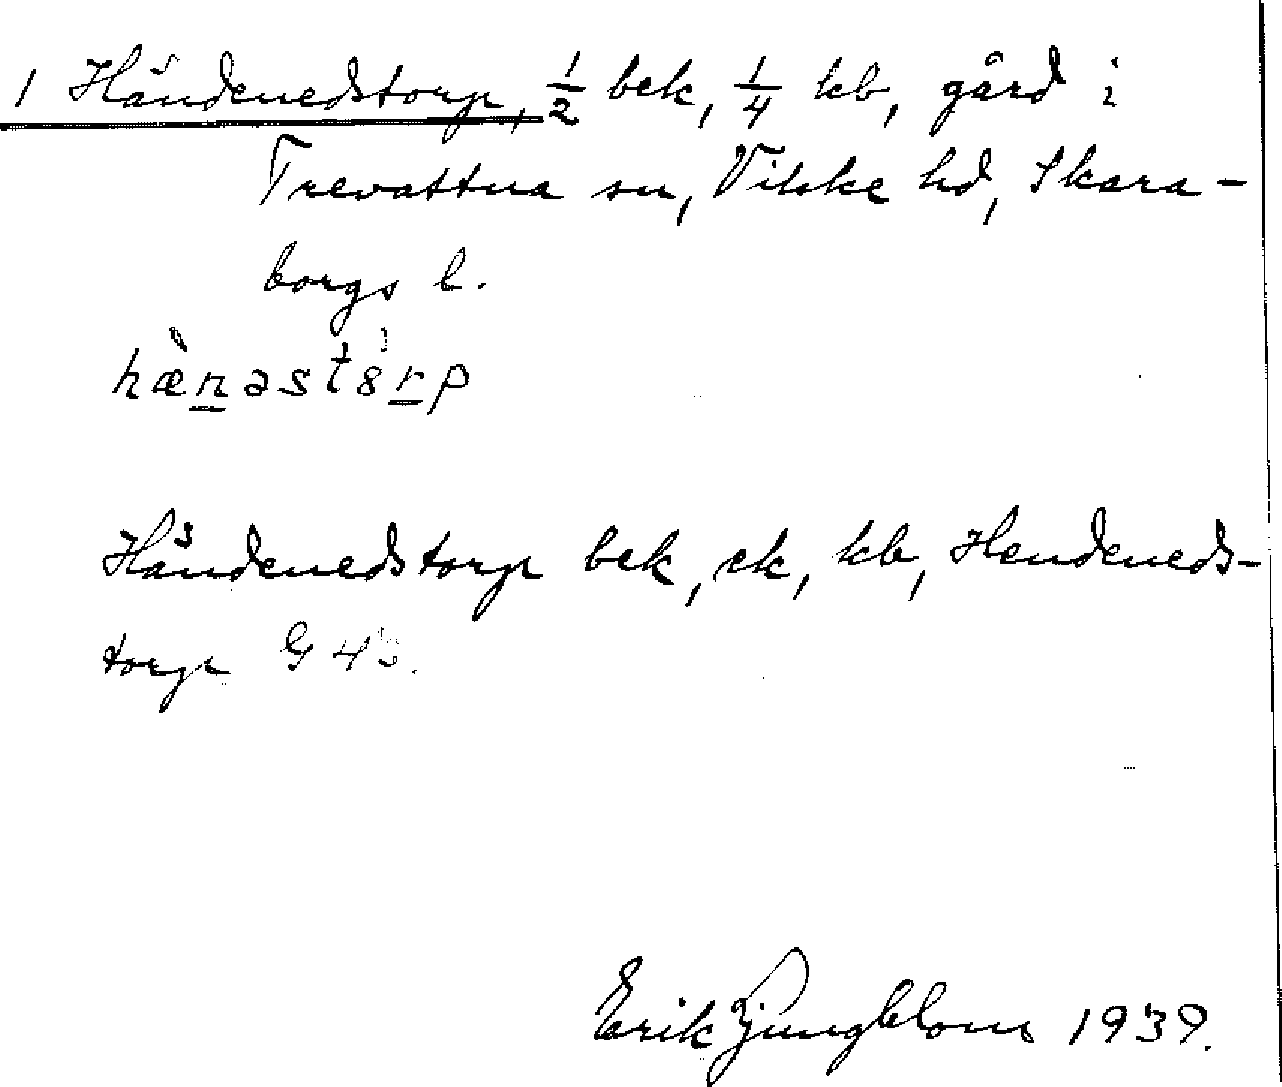 1 Händenedstorp, 1/2 bek, 1/4 kb, gård i
Trevattna sn, Vilske hd, Skara-
borgs l.
hæ̀nast8rp
Händenedstorp bek, ek, kb, Hendeneds-
torp G 43.
Erik Ljungblom 1939.